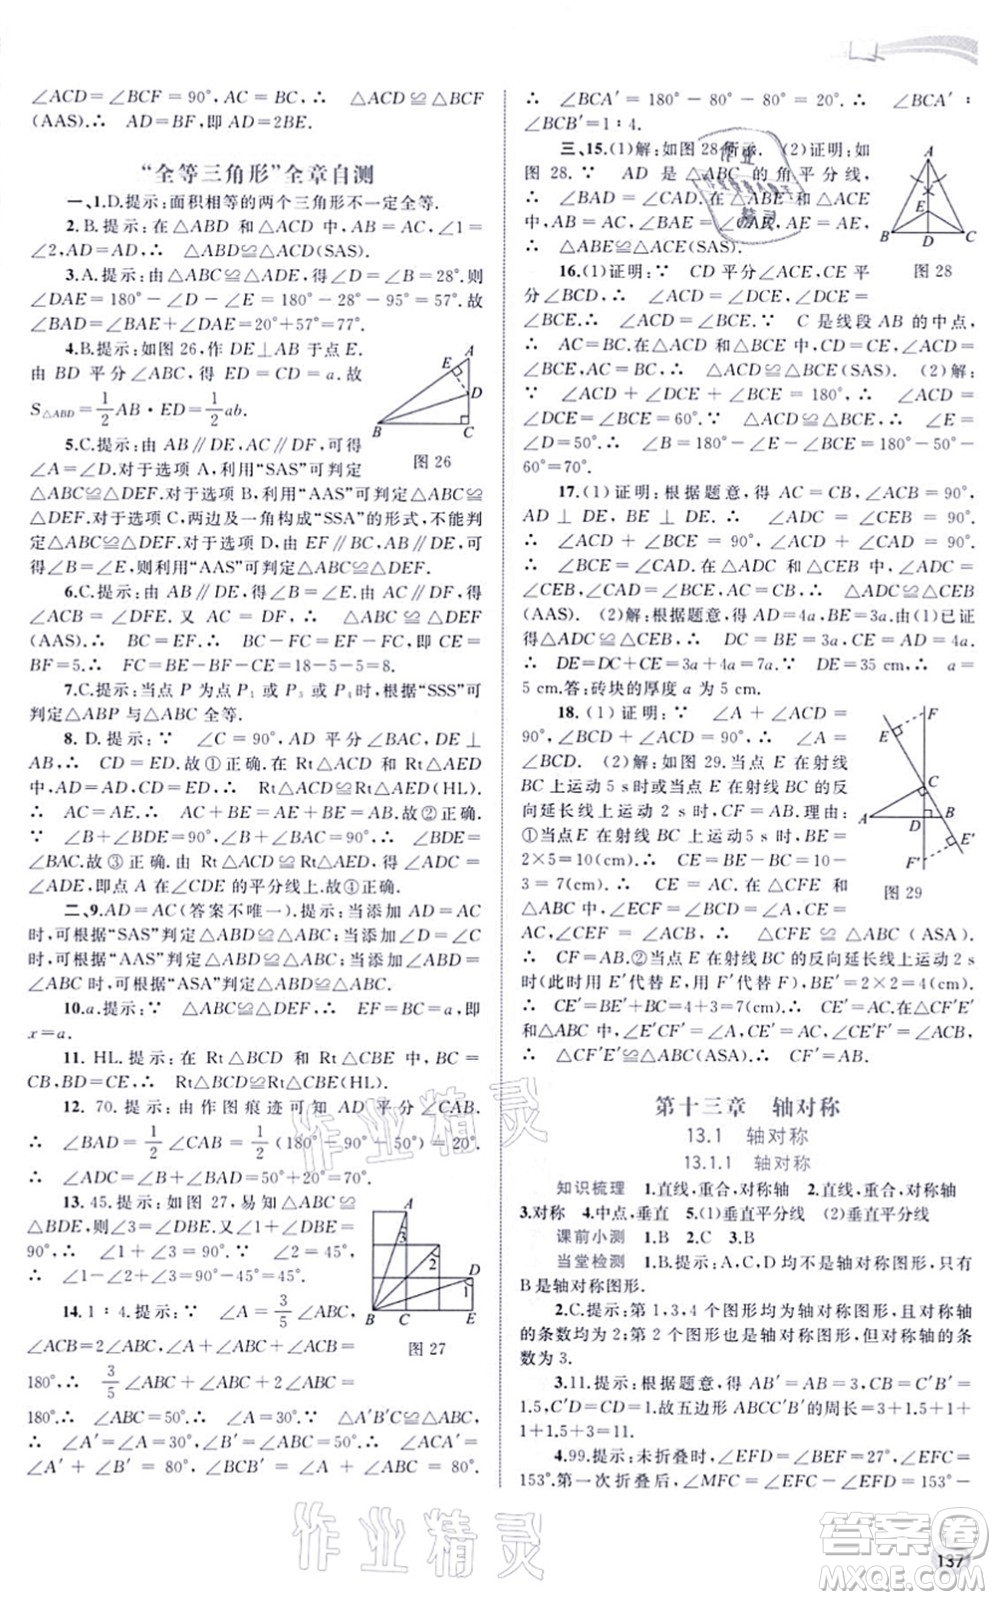 ∠ACD=∠BCF=90°,AC=BC,∴ △ACD≌△BCF
(AAS).∴ AD=BF,即 AD=2BE.
“全等三角形”全章自测
一、1.D.提示:面积相等的两个三角形不一定全等.
2.B.提示:在△ABD 和△ACD 中,AB=AC,∠1=
∠2,AD=AD,∴ △ABD≌△ACD(SAS).
3.A.提示:由△ABC≌△ADE,得∠D=∠B=28°.则
∠DAE=180°-∠D-∠E=180°-28°-95°=57°.故
∠BAD=∠BAE+∠DAE=20°+57°=77°.
4.B.提示:如图 26,作 DE⊥AB 于点 E.
由 BD 平分∠ABC,得 ED=CD=a.故
S△ABD=1/2AB·ED=1/2ab.
图 26
5.C.提示:由 AB∥DE,AC∥DF,可得
∠A=∠D.对于选项 A,利用“SAS”可判定
△ABC≌△DEF.对于选项 B,利用“AAS”可判定△ABC≌
△DEF.对于选项 C,两边及一角构成“SSA”的形式,不能判
定△ABC≌△DEF.对于选项 D,由 EF∥BC,AB∥DE,可
得∠B=∠E,所以利用“AAS”可判定△ABC≌△DEF.
6.C.提示:由 AB∥DE,得∠B=∠DEF.由 AC∥DF,得
∠ACB=∠DFE.又 AC=DF,∴ △ABC≌△DEF
(AAS).∴ BC=EF.∴ BC-CF=EF-CF,即 CE=
BF=5.∴ CF=BC-BF-CE=18-5-5=8.
7.C.提示:当点 P 为点 P₁ 或 P₃ 或 P₄ 时,根据“SSS”可
判定△ABP 与△ABC 全等.
8. D.提示:∵ ∠C=90°,AD 平分∠BAC,DE⊥
AB,∴ CD=ED.故①正确.在 Rt△ACD 和 Rt△AED
中,AD=AD,CD=ED,∴ Rt△ACD≌Rt△AED(HL).
∴ AC=AE.∴ AC+BE=AE+BE=AB.故②正确.
∵ ∠B+∠BDE=90°,∠B+∠BAC=90°,∴ ∠BDE=
∠BAC.故③正确.由 Rt△ACD≌Rt△AED,得∠ADC=
∠ADE,即点 A 在∠CDE 的平分线上.故④正确.
二、9.AD=AC(答案不唯一).提示:当添加 AD=AC
时,可根据“SAS”判定△ABD≌△ABC;当添加∠D=∠C
时,可根据“AAS”判定△ABD≌△ABC;当添加∠ABD=
∠ABC时,可根据“ASA”判定△ABD≌△ABC.
10.a.提示:∵ △ABC≌△DEF,∴ EF=BC=a,即
x=a.
11. HL.提示:在 Rt△BCD 和 Rt△CBE 中,BC=
CB,BD=CE,∴ Rt△BCD≌Rt△CBE(HL).
12. 70.提示:由作图痕迹可知 AD 平分∠CAB.
∴ ∠BAD=1/2∠CAB=1/2(180°-90°-50°)=20°.
∴ ∠ADC=∠B+∠BAD=50°+20°=70°.
13.45.提示:如图 27,易知△ABC≌
△BDE,则∠1=∠3.∵ ∠CBD+∠1=
90°,∴ ∠CBD+∠3=90°.又∠2=
45°,∴ ∠1-∠2+∠3=90°-∠2=45°.
图 27
14.1∶4.提示:∵ ∠A=3/5∠ABC,
∠ACB=2∠ABC,∠A+∠ABC+∠ACB=
180°,∴ 3/5∠ABC+∠ABC+2∠ABC=
180°.∴ ∠ABC=50°.∵ △A′B′C≌△ABC,
∴ ∠A′=∠A=30°,∠B′=∠ABC=50°.∴ ∠ACA′=
∠A′+∠B′=80°,∠B′CB=∠A+∠ABC=80°.
∴ ∠BCA′=180°-80°-80°=20°.∴ ∠BCA′∶
∠BCB′=1∶4.
三、15.(1)解:如图 28 所示. (2)证明:如
图 28.∵ AD 是△ABC 的角平分线,
∴ ∠BAD=∠CAD.在△ABE 和△ACE
中,AB=AC,∠BAE=∠CAE,AE=AE,
∴ △ABE≌△ACE(SAS).
图 28
16.(1)证明:∵ CD 平分∠ACE,CE 平
分∠BCD,∴ ∠ACD=∠DCE,∠DCE=
∠BCE.∴ ∠ACD=∠BCE.∵ C 是线段 AB 的中点,
∴ AC=BC.在△ACD 和△BCE 中,AC=BC,∠ACD=
∠BCE,CD=CE,∴ △ACD≌△BCE(SAS). (2)解:
∵ ∠ACD+∠DCE+∠BCE=180°,∠ACD=
∠DCE=∠BCE,∴ ∠BCE=60°.∵ △ACD≌△BCE,
∠D=50°,∴ ∠E=∠D=50°.∴ ∠B=180°-50°-
60°=70°.
17.(1)证明:根据题意,得 AC=CB,∠ACB=90°,
AD⊥DE,BE⊥DE.∴ ∠ADC=∠CEB=90°.
∴ ∠ACD+∠BCE=90°,∠ACD+∠CAD=90°.
∴ ∠BCE=∠CAD.在△ADC 和△CEB 中,
∠ADC=∠CEB,∠CAD=∠BCE,AC=CB,∴ △ADC≌△CEB
(AAS). (2)解:根据题意,得 AD=4a,BE=3a.由(1)已证
得△ADC≌△CEB,∴ DC=BE=3a,CE=AD=4a.
∴ DE=DC+CE=7a.∵ DE=35 cm,∴ a=
5 cm.答:砖块的厚度 a 为 5 cm.
18. (1)证明:∵ ∠A+∠ACD=
90°,∠BCD+∠ACD=90°,∴ ∠A=
∠BCD. (2)解:如图 29.当点 E 在射线
BC 上运动5s或当点 E 在射线 BC 的反
向延长线上运动 2 s 时,CF=AB.理由:
①当点E 在射线 BC 上运动5s时,BE=
2×5=10(cm).∴ CE=BE-BC=10-
3=7(cm).∴ CE=AC.在△CFE 和△ABC
中,∠ECF=∠BCD=∠A,CE=
AC,∠CEF=∠ACB,∴ △CFE≌△ABC(ASA).
∴ CF=AB.②当点 E 在射线 BC 的反向延长线上运动 2 s
时(此时用E′代替 E,F′代替 F),BE′=2×2=4(cm),
∴ CE′=BE′+BC=4+3=7(cm).∴ CE′=AC.在△CF′E′
和△ABC 中,∠E′CF′=∠A,CE′=AC,∠CE′F′=∠ACB,
∴ △CF′E′≌△ABC(ASA).∴ CF′=AB.
图 29
第十三章 轴对称
13.1 轴对称
13.1.1 轴对称
知识梳理 1.直线,重合,对称轴 2.直线,重合,对称轴
3.对称 4.中点,垂直 5.(1)垂直平分线 (2)垂直平分线
课前小测 1.B 2.C 3.B
当堂检测 1.B.提示:A,C,D 均不是轴对称图形,只有
B 是轴对称图形.
2.C.提示:第 1,3,4 个图形均为轴对称图形,且对称轴
的条数均为 2;第 2 个图形也是轴对称图形,但对称轴的条
数为 3.
3.11.提示:根据题意,得 AB′=AB=3,B′C′=BC=
1.5,C′D=CD=1.故五边形 ABCC′B′的周长=3+1.5+1
+1+1.5+3=11.
4.99.提示:未折叠时,∠EFD=∠BEF=27°,∠EFC=
153°.第一次折叠后,∠MFC=∠EFC-∠EFD=153°-
137
作业精灵
作业精灵
作业
精灵
答案圈
MXQE.COM
A
B
C
D
E
A
B
C
D
E
1
2
3
A
B
D
C
E
A
B
C
D
E
F
E′
F′